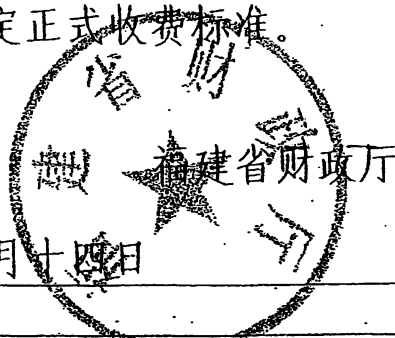 定正式收费标准。
福建省财政厅
月十四日
省财政厅